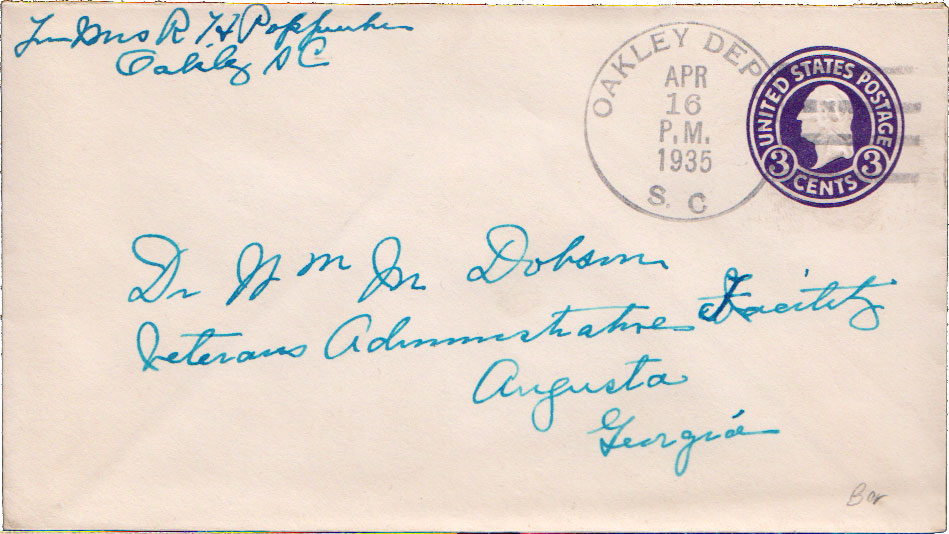 Mrs R H
Oakley S C
OAKLEY DEP
APR
16
P.M.
1935
S. C
UNITED STATES POSTAGE
3 CENTS 3
Dr Wm M Dobson
Veterans Administratives Facility
Augusta
Georgia